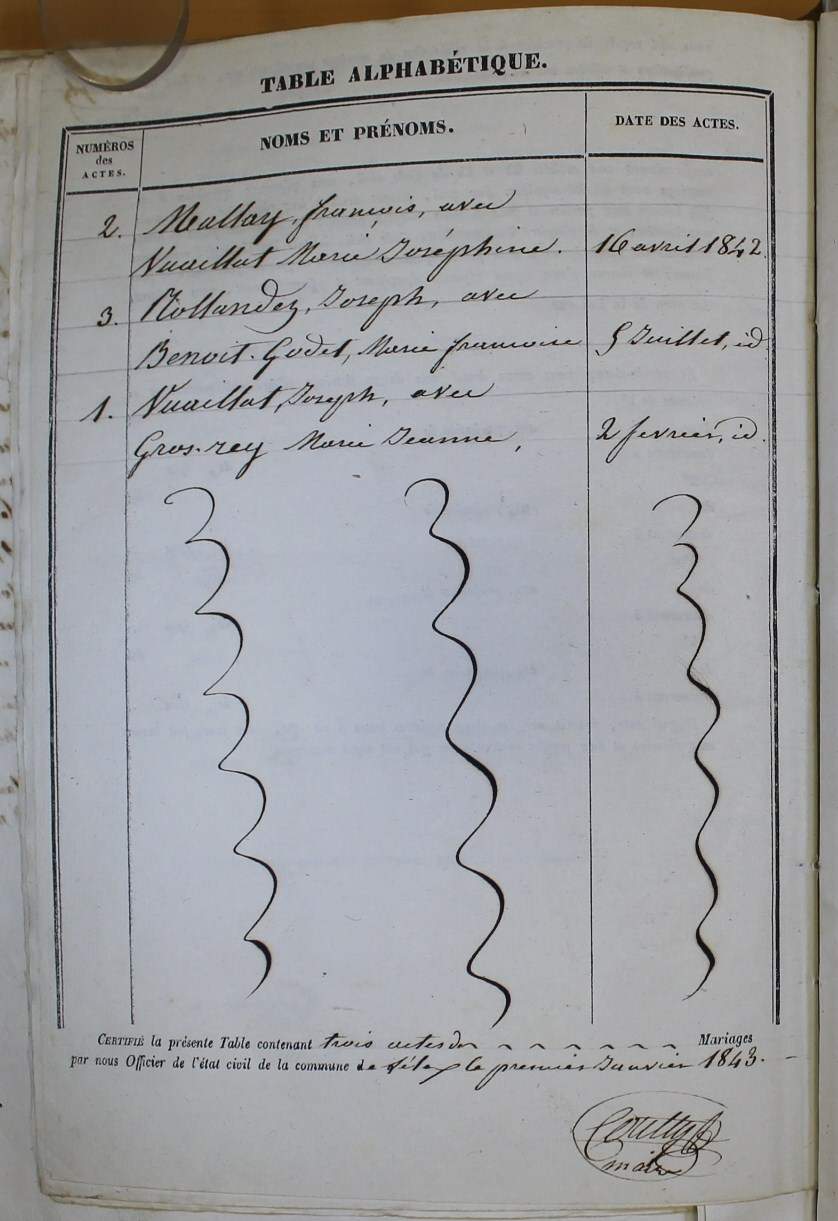 TABLE ALPHABÉTIQUE.
NUMÉROS
des
ACTES.
NOMS ET PRÉNOMS.
DATE DES ACTES.
2. Mallay, françois, avec
Vuaillat Marie Joséphine. 16 avril 1842.
3. Rollandez, Joseph, avec
Benoit-Godet, Marie françoise 5 Juillet, id.
1. Vuaillat, Joseph, avec
Gros-rey Marie Jeanne, 2 fevrier, id.
CERTIFIÉ la présente Table contenant trois actes de Mariages
par nous Officier de l'état civil de la commune de le premier Janvier 1843.
maire